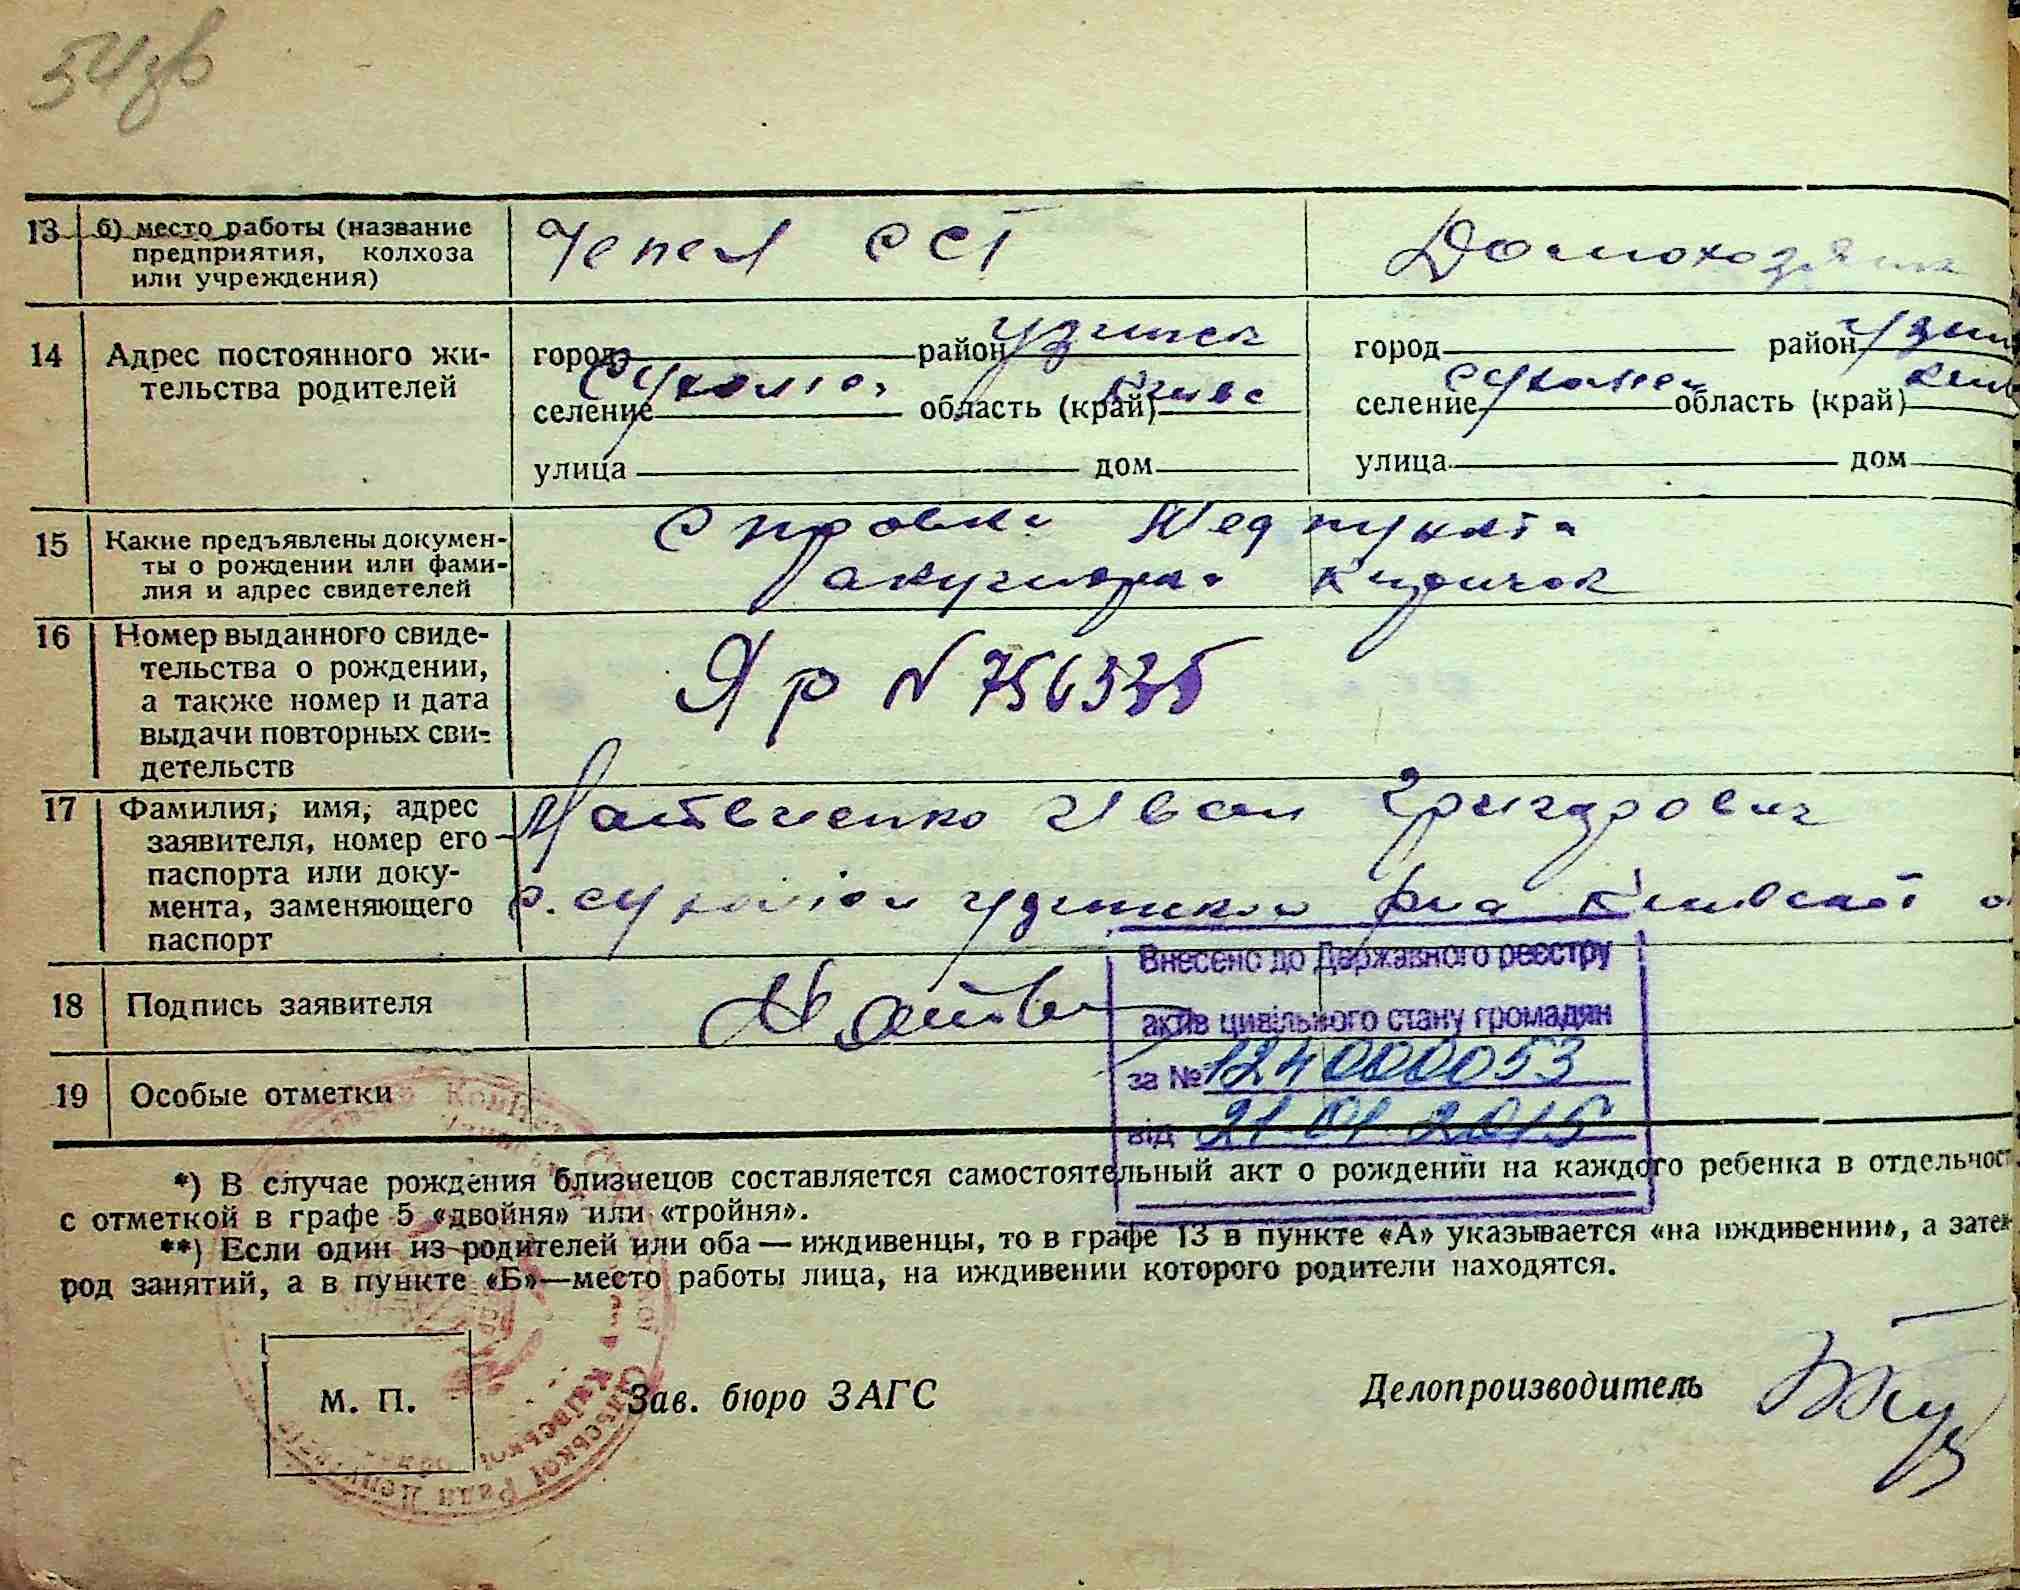 54зв
13 б) место работы (название предприятия, колхоза или учреждения) Чепел ССТ Домохозяйк
14 Адрес постоянного жи-
тельства родителей
город район Узинск город район Узин
селение Сухолес область (край) Киевс селение Сухолес область (край) Киев
улица дом улица дом
15 Какие предъявлены докумен-
ты о рождении или фами-
лия и адрес свидетелей
Справка Медпункта
акушерка
16 Номер выданного свиде-
тельства о рождении,
а также номер и дата
выдачи повторных сви-
детельств
Яр N 756335
17 Фамилия, имя, адрес
заявителя, номер его
паспорта или доку-
мента, заменяющего
паспорт
Матвиенко Иван Григорович
с. Сухолесы Узинского р-на Киевской о
18 Подпись заявителя Матви
Внесено до Державного реєстру
актів цивільного стану громадян
за № 124000053
від 21 01 2015
19 Особые отметки
*) В случае рождения близнецов составляется самостоятельный акт о рождении на каждого ребенка в отдельност
с отметкой в графе 5 «двойня» или «тройня».
**) Если один из родителей или оба — иждивенцы, то в графе 13 в пункте «А» указывается «на иждивении», а затем
род занятий, а в пункте «Б»—место работы лица, на иждивении которого родители находятся.
М. П. Зав. бюро ЗАГС Делопроизводитель